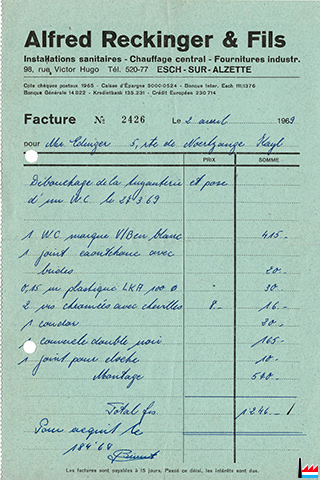 Alfred Reckinger & Fils
Installations sanitaires - Chauffage central - Fournitures industr.
98, rue Victor Hugo Tél. 520-77 ESCH-SUR-ALZETTE
Cpte chèques postaux 1965 - Caisse d'Epargne 5000-0524 - Banque Inter. Esch 111376
Banque Générale 14822 - Kredietbank 135.231 - Crédit Européen 230 714
Facture № 2426 Le 2 avril 1969
pour Mr. Edinger 5, rte de Noertzange Kayl
PRIX SOMME
Débouchage de la tuyauterie et pose
d'un W.C. le 27.3.69
1 W.C. marque V/Ben blanc 415.-
1 joint caoutchouc avec
brides 20.-
0,15 m plastique LKA 100 Ø 30.-
2 vis chromées avec chevilles 8.- 16.-
1 20.-
1 couvercle double noir 165.-
1 joint pour cloche 10.-
Montage 580.-
Total frs. 1246.-
Pour acquit le
18.4.69
Les factures sont payables à 15 jours. Passé ce délai, les intérêts sont dus.